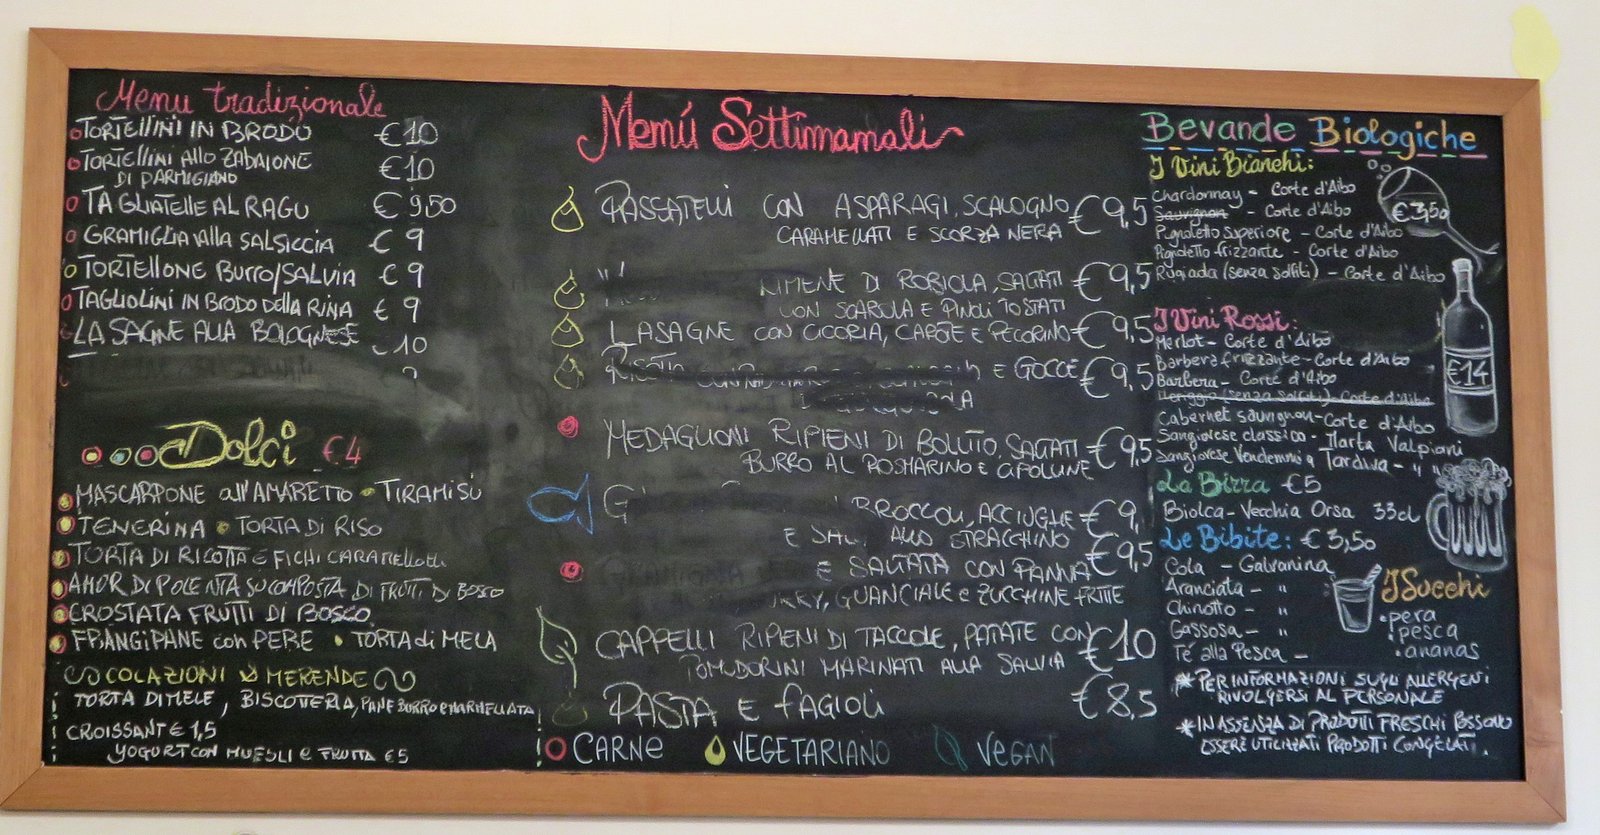 Menu tradizionale
TORTELLINI IN BRODO €10
TORTELLINI Allo ZABAIONE €10
DI PARMIGIANO
TAGLIATELLE AL RAGU €9,50
GRAMIGLIA alla SALSICCIA €9
TORTELLONE BURRO/SALVIA €9
TAGLIOLINI IN BRODO DELLA RINA €9
LASAGNE ALLA BOLOGNESE 10
9
Dolci €4
MASCARPONE all'AMARETTO • TIRAMISÙ
TENERINA • TORTA DI RISO
TORTA DI RICOTTA E FICHI CARAMELLATI
AMOR DI POLENTA SU COMPOSTA DI FRUTTI DI BOSCO
CROSTATA FRUTTI DI BOSCO
FRANGIPANE con PERE • TORTA di MELA
COLAZIONI & MERENDE
TORTA DI MELE, BISCOTTERIA, PANE BURRO e MARMELLATA
CROISSANT € 1,5
YOGURT CON MUESLI e FRUTTA €5
Menú Settimamali
PASSATELLI CON ASPARAGI, SCALOGNO €9,5
CARAMELLATI E SCORZA NERA
RIPIENE DI ROBIOLA, SALTATI €9,5
CON SCAROLA E PINOLI TOSTATI
LASAGNE CON CICORIA, CAROTE E PECORINO €9,5
RISOTTO E GOCCE €9,5
MEDAGLIONI RIPIENI DI BOLLITO, SALTATI €9,5
BURRO AL ROSMARINO E CIPOLLINE
BROCCOLI, ACCIUGHE €9,
E ALLO STRACCHINO
E SALTATA CON PANNA €9,5
GUANCIALE e ZUCCHINE FRITTE
CAPPELLI RIPIENI DI TACCOLE, PATATE CON €10
POMODORINI MARINATI ALLA SALVIA
PASTA E FAGIOLI €8,5
CARNE VEGETARIANO VEGAN
Bevande Biologiche
I Vini Bianchi:
Chardonnay - Corte d'Aibo
Sauvignon - Corte d'Aibo
€3,50
Pignoletto Superiore - Corte d'Aibo
Pignoletto frizzante - Corte d'Aibo
Rugiada (senza solfiti) - Corte d'Aibo
I Vini Rossi:
Merlot - Corte d'Aibo
Barbera frizzante - Corte d'Aibo
Barbera - Corte d'Aibo
€14
(senza solfiti) Corte d'Aibo
Cabernet Sauvignon - Corte d'Aibo
Sangiovese classico - Ilaria Valpiani
Sangiovese Vendemmia Tardiva - " "
La Birra €5
Biolca - Vecchia Orsa 33cl
Le Bibite: €3,50
Cola - Galvanina
Aranciata - "
Chinotto - "
Gassosa - "
Té alla Pesca -
I Succhi
• pera
• pesca
• ananas
* PER INFORMAZIONI SUGLI ALLERGENI
RIVOLGERSI AL PERSONALE
* IN ASSENZA DI PRODOTTI FRESCHI POSSONO
ESSERE UTILIZZATI PRODOTTI CONGELATI.